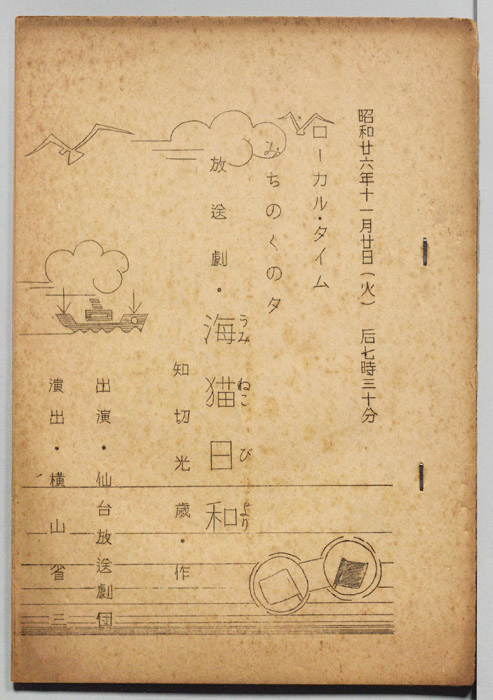 昭和廿六年十一月廿日（火） 后七時三十分
ローカル・タイム
みちのくの夕
放送劇・海猫日和
うみ ねこ び より
知切光歳・作
出演・仙台放送劇団
演出・横山省三